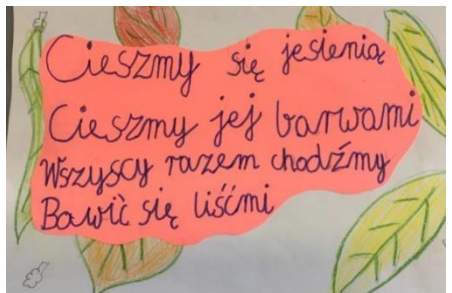 Cieszmy się jesienią
Cieszmy jej barwami
Wszyscy razem chodźmy
Bawić się liśćmi